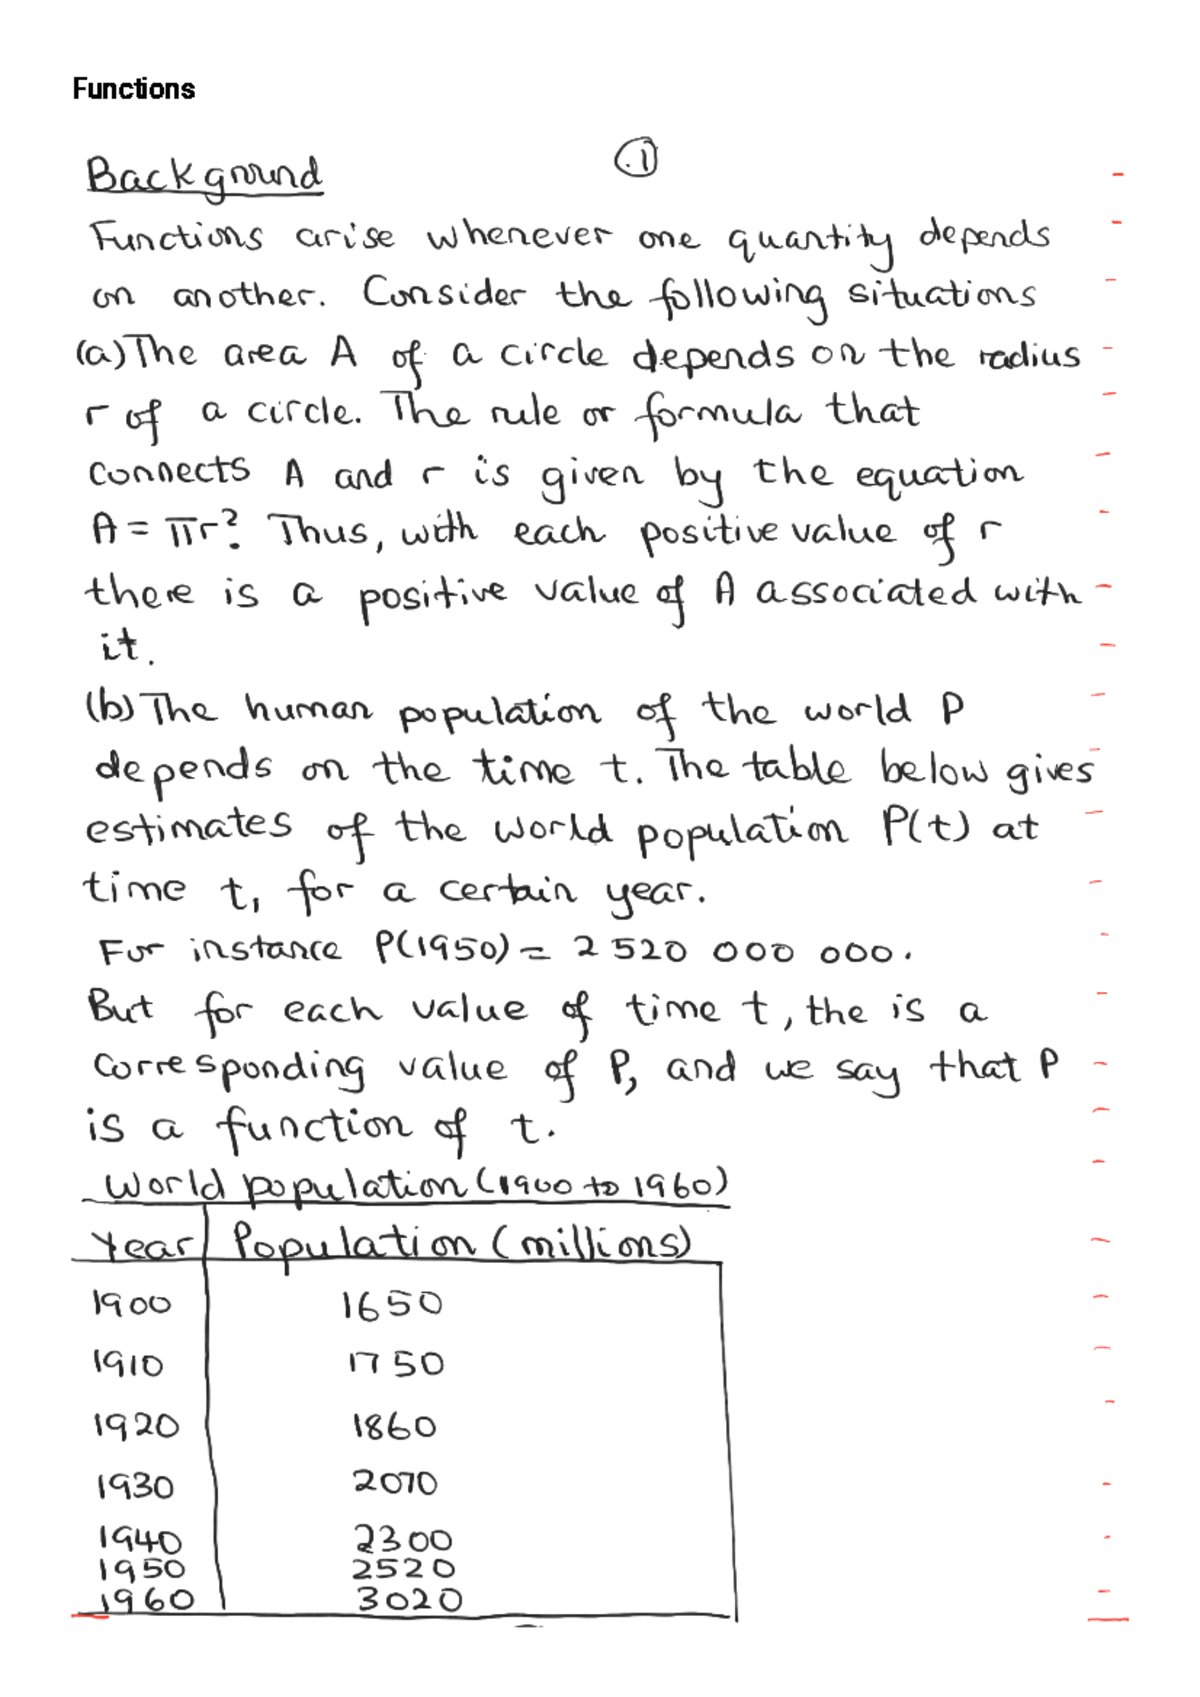 Functions
Background
.1
Functions arise whenever one quantity depends
on another. Consider the following situations
(a) The area A of a circle depends on the radius
r of a circle. The rule or formula that
connects A and r is given by the equation
A = πr². Thus, with each positive value of r
there is a positive value of A associated with
it.
(b) The human population of the world P
depends on the time t. The table below gives
estimates of the world population P(t) at
time t, for a certain year.
For instance P(1950) = 2 520 000 000.
But for each value of time t, the is a
corresponding value of P, and we say that P
is a function of t.
World population (1900 to 1960)
Year Population (millions)
1900 1650
1910 1750
1920 1860
1930 2070
1940 2300
1950 2520
1960 3020